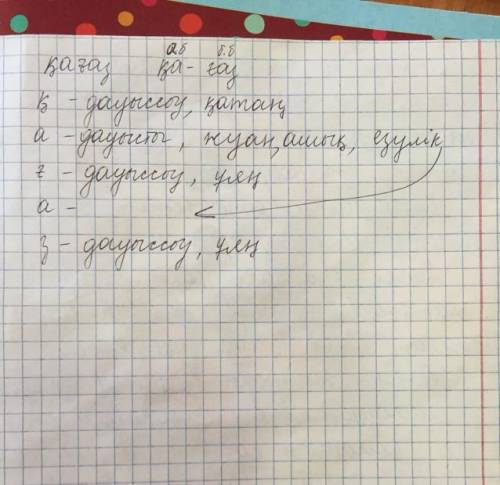 а.б б.б
қағаз қа - ғаз
қ - дауыссыз, қатаң
а - дауысты, жуан, ашық, езулік
ғ - дауыссыз, ұяң
а -
з - дауыссыз, ұяң